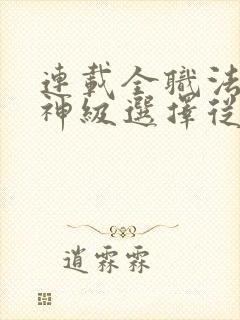 連載全職法
神級選擇從
逍霖霖